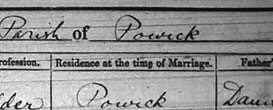 Parish of Powick
rofession. Residence at the time of Marriage. Father'
lder Powick Dani